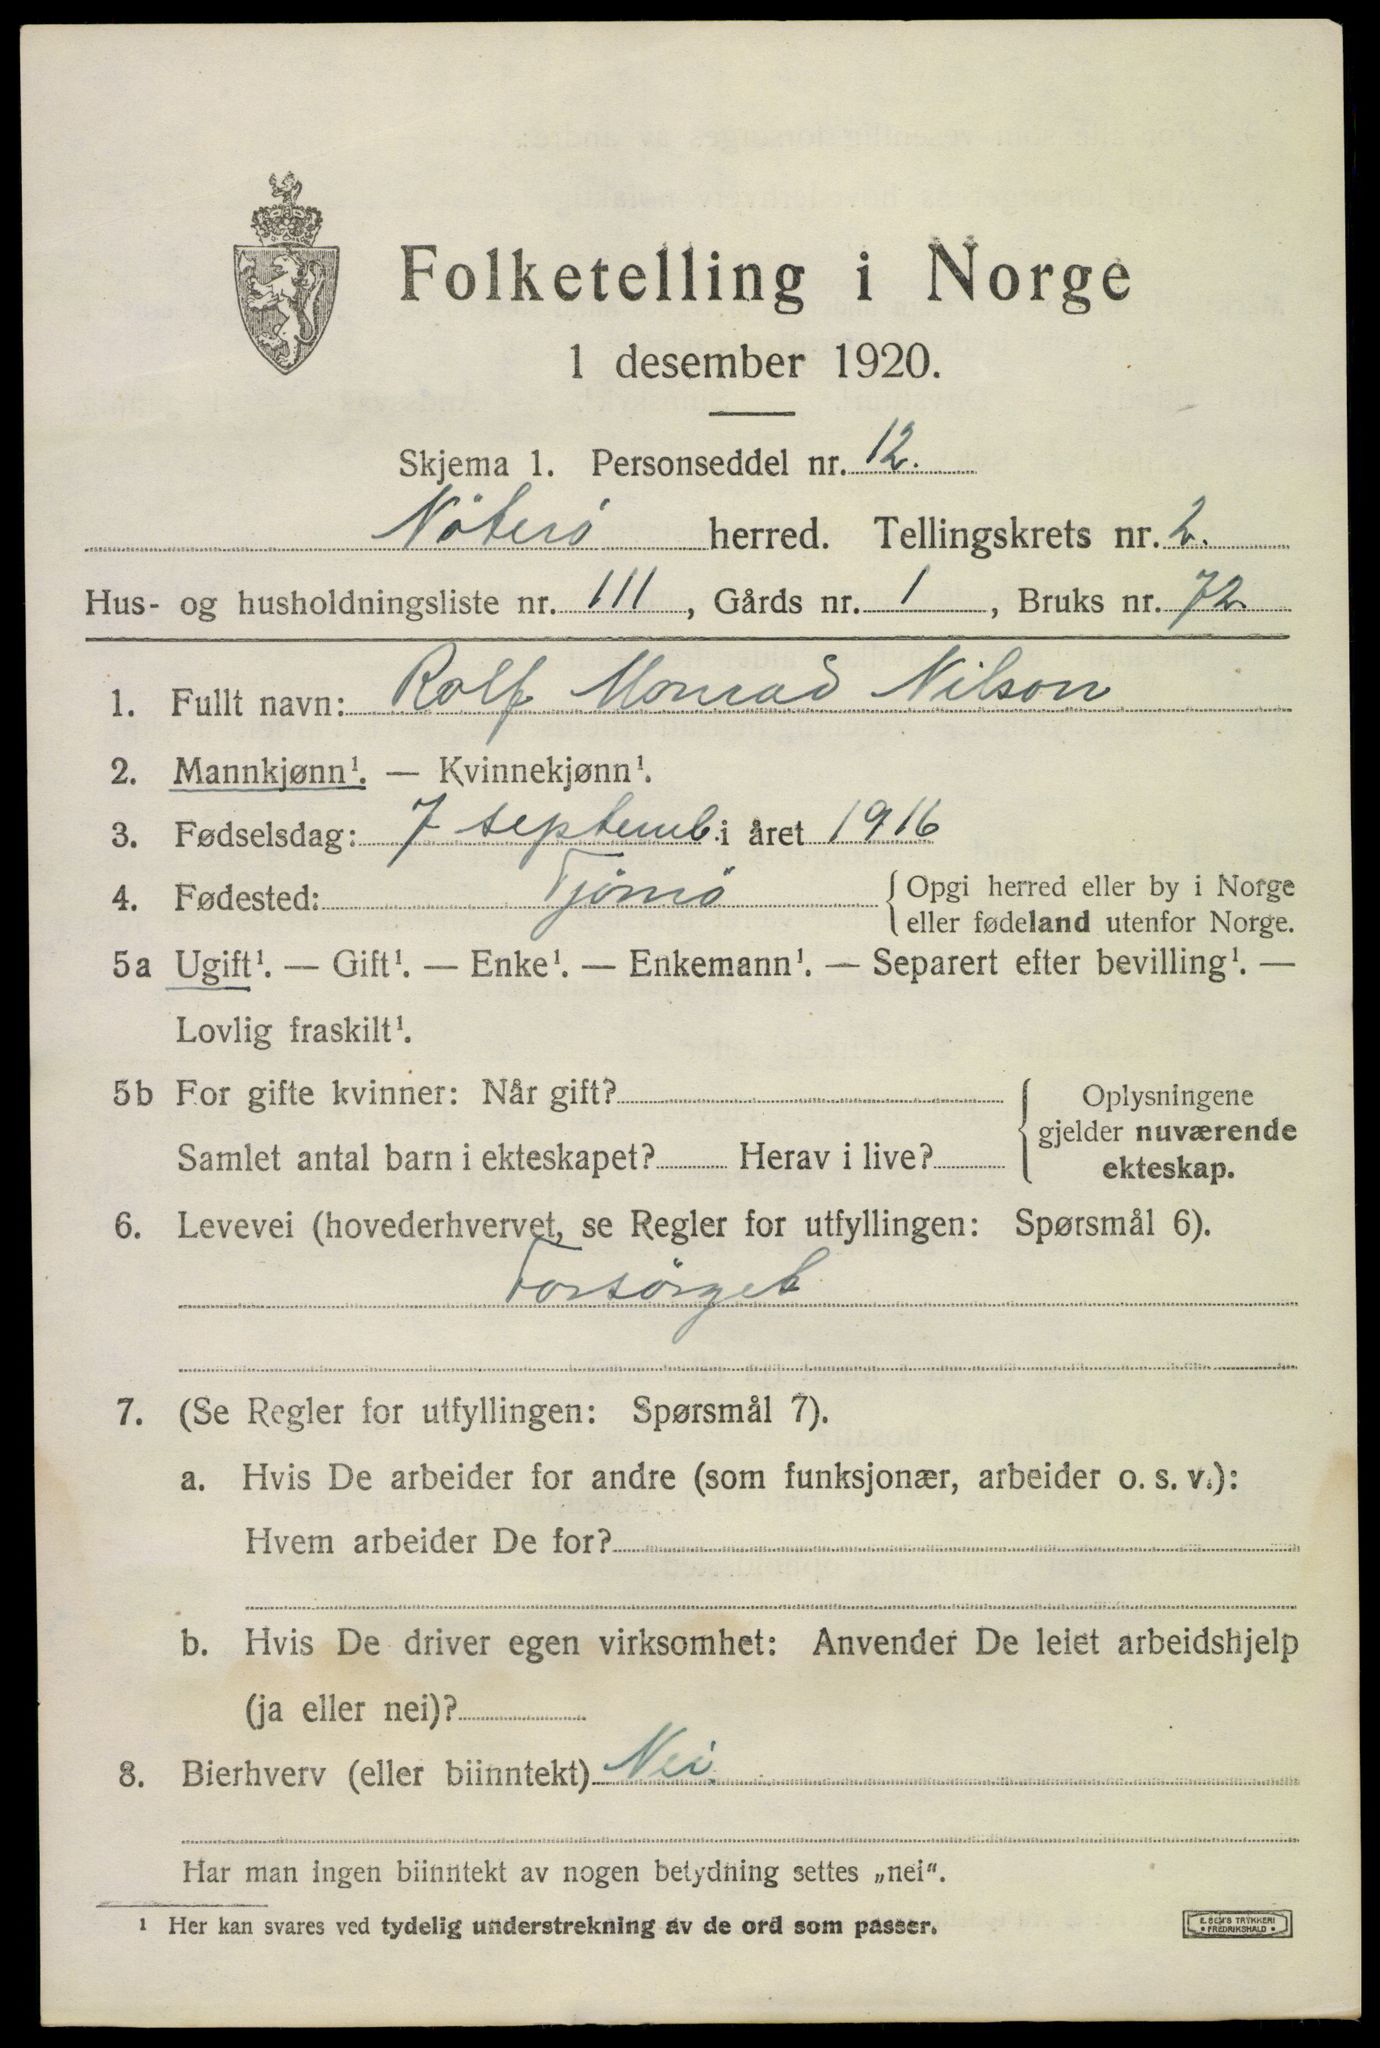 Folketelling i Norge
1 desember 1920.
Skjema 1. Personseddel nr. 12.
Nöterö herred. Tellingskrets nr. 2.
Hus- og husholdningsliste nr. 111, Gårds nr. 1, Bruks nr. 72
1. Fullt navn: Rolf Monrad Nilson
2. Mannkjønn¹. — Kvinnekjønn¹.
3. Fødselsdag: 7 septemb. i året 1916
4. Fødested: Tjömö { Opgi herred eller by i Norge
eller fødeland utenfor Norge.
5a Ugift¹. — Gift¹. — Enke¹. — Enkemann¹. — Separert efter bevilling¹. —
Lovlig fraskilt¹.
5b For gifte kvinner: Når gift?
Samlet antal barn i ekteskapet? Herav i live?
{ Oplysningene
gjelder nuværende
ekteskap.
6. Levevei (hovederhvervet, se Regler for utfyllingen: Spørsmål 6).
Forsörget
7. (Se Regler for utfyllingen: Spørsmål 7).
a. Hvis De arbeider for andre (som funksjonær, arbeider o. s. v.):
Hvem arbeider De for?
b. Hvis De driver egen virksomhet: Anvender De leiet arbeidshjelp
(ja eller nei)?
8. Bierhverv (eller biinntekt) Nei.
Har man ingen biinntekt av nogen betydning settes „nei“.
¹ Her kan svares ved tydelig understrekning av de ord som passer.
E. SEM'S TRYKKERI
• FREDRIKSHALD •